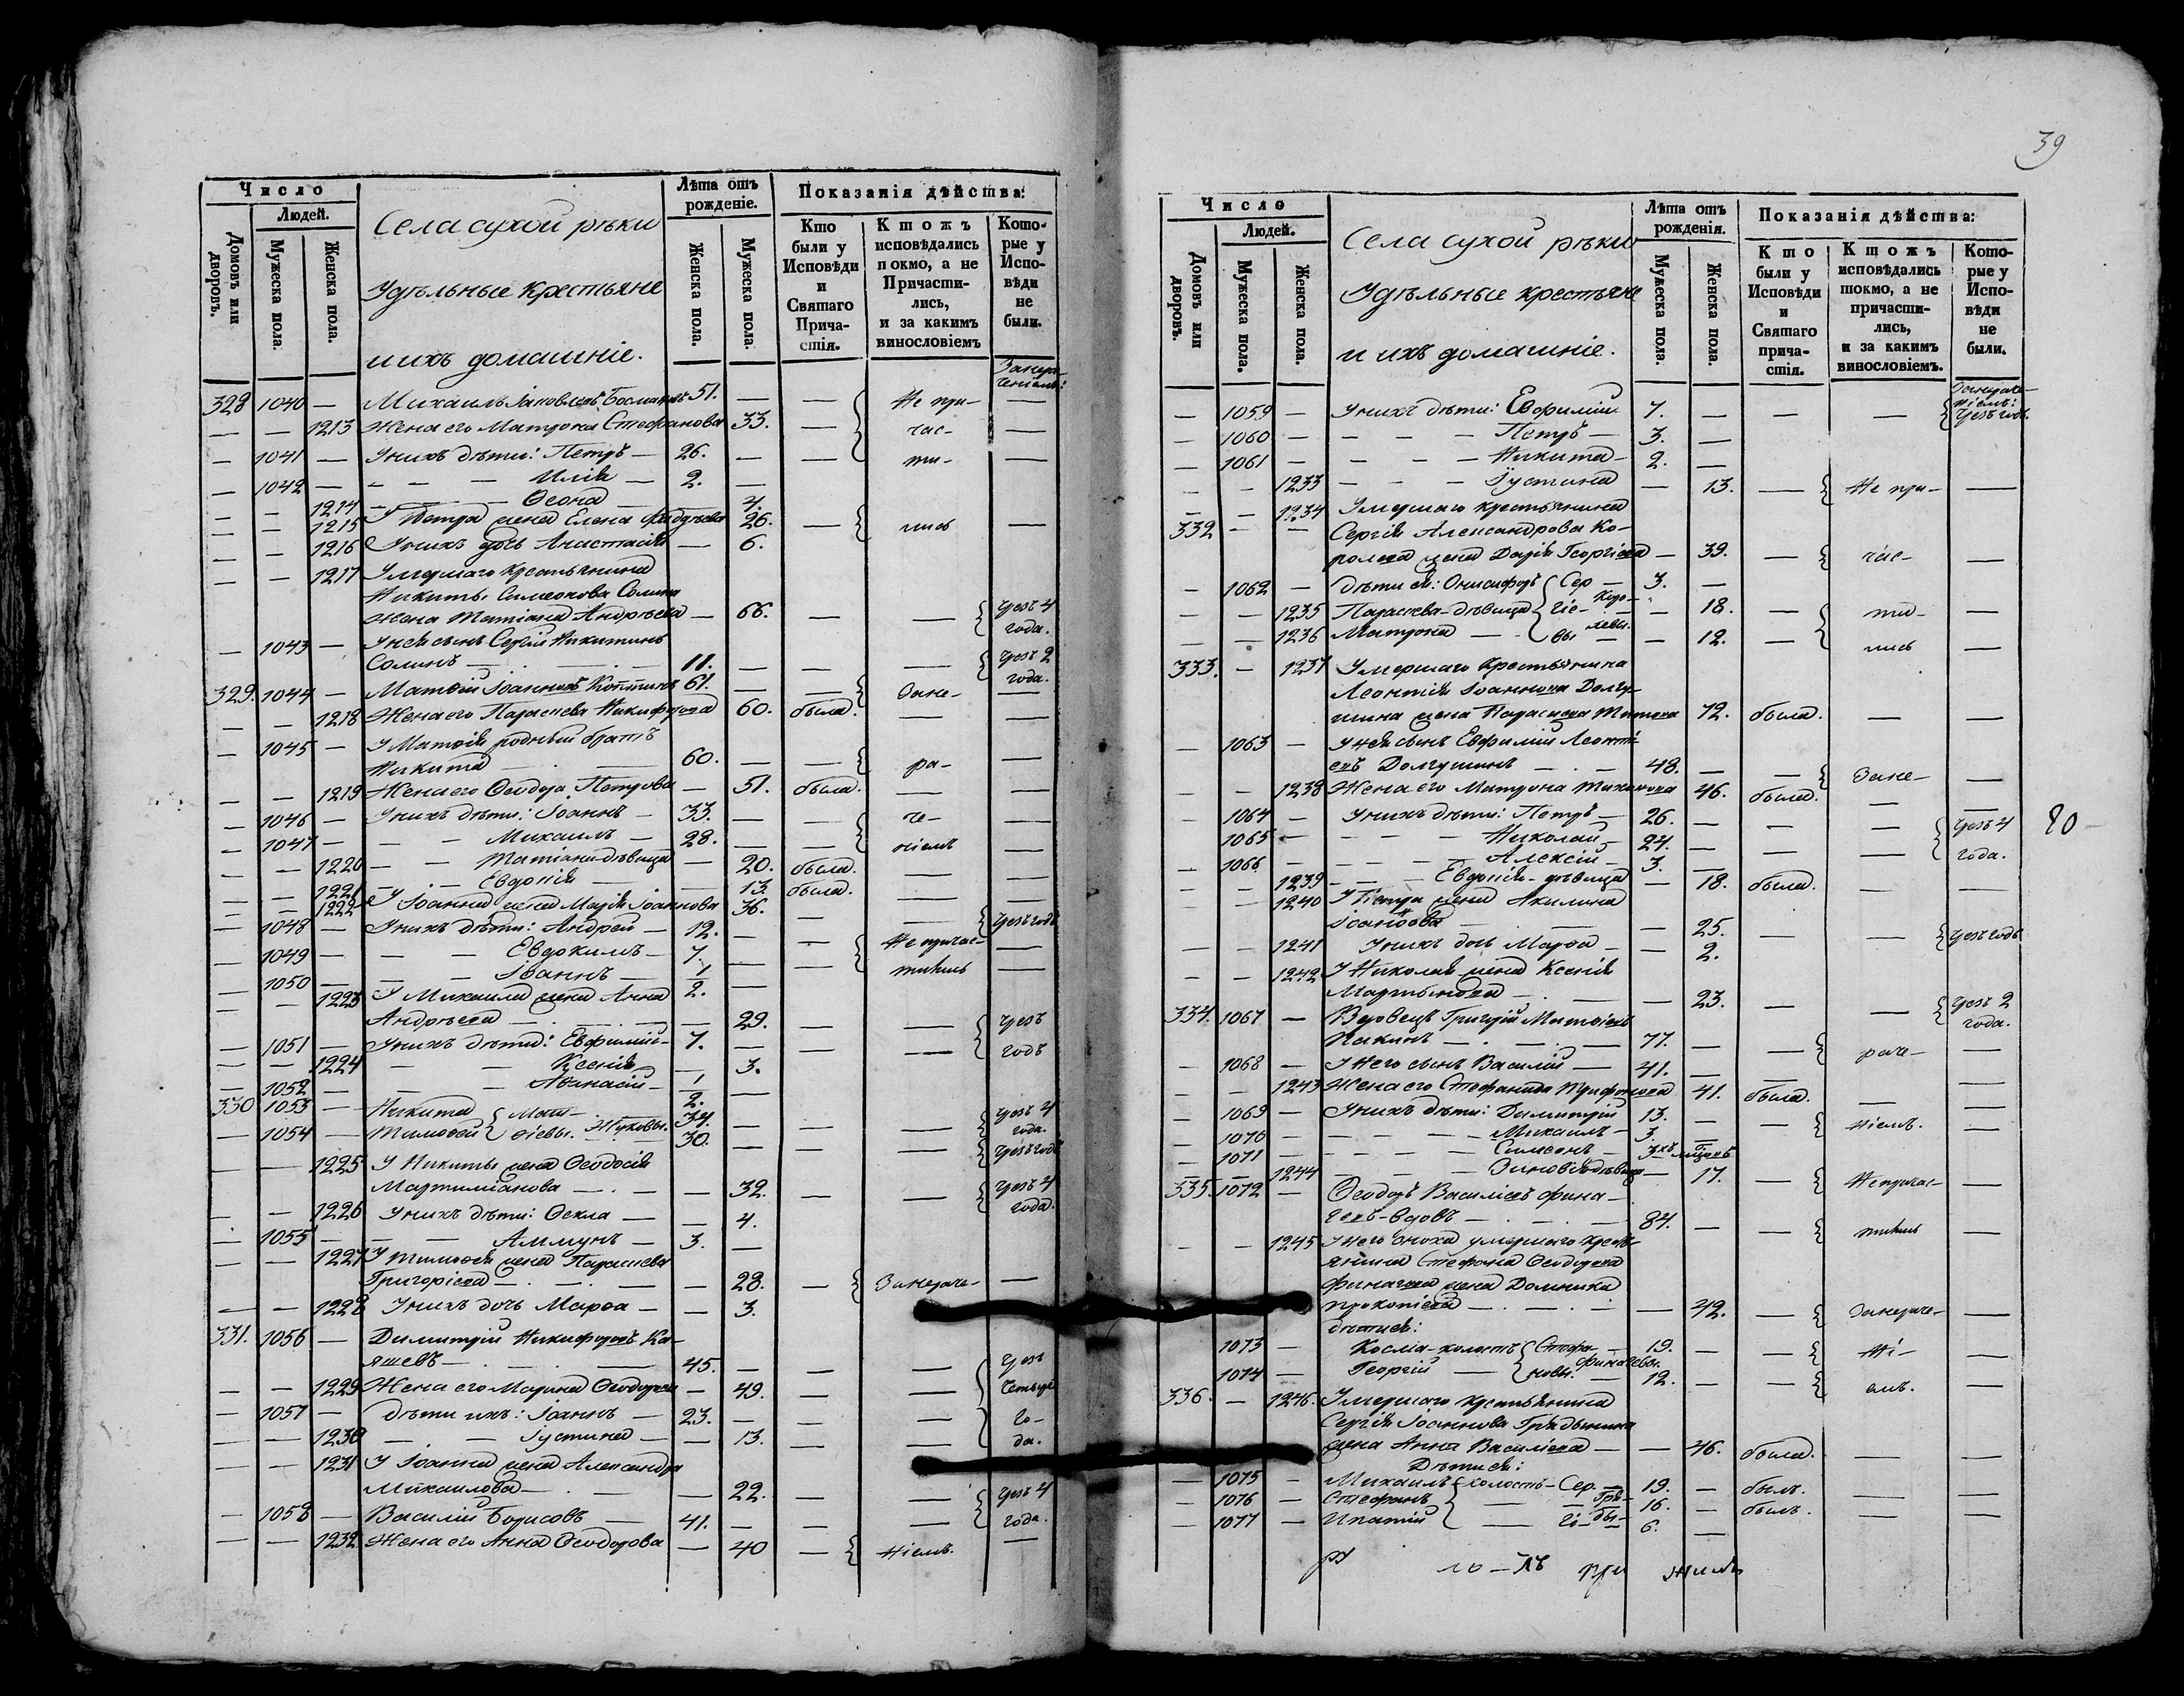 Число
Людей.
Домовъ или дворовъ.
Мужеска пола.
Женска пола.
Села сухой рѣки
Удѣльные крестьяне
и ихъ домашніе.
Лѣта отъ рожденіе.
Женска пола.
Мужеска пола.
Показанія дѣйства:
Кто были у Исповѣди и Святаго Прича- стія.
Ктожъ исповѣдались покмо, а не Причасти- лись, и за какимъ винословіемъ
Кото- рые у Испо- вѣди не были.
328 1040 — Михаилъ Іаковлевъ 51. — — Не при- —
— — 1213 Жена его Матрона Стефанова 33. — час- —
— 1041 — У нихъ дѣти: Петръ — 26. — — ти- —
— 1042 — — — — Илія — 2. —
— — 1214 — — — Ѳеона — 4.
— — 1215 У Петра жена Елена 26. — лись —
— — 1216 У нихъ дочь Анастасія — 6.
— — 1217 Умершаго крестьянина
Никиты Симеонова
жена Татіана Андреева — 66. — — чрезъ 4 года.
— 1043 — У нея сынъ Сергій Никитинъ
11. — — — чрезъ 2 года.
329. 1044 — Матвій Іоанновъ 61. — — Зане- —
— 1218 Жена его Параскева Никифорова 60. была. — —
— 1045 — У Матвія родный братъ
Никита — 60. — — ра- —
— — 1219 Жена его Ѳеодора Петрова — 51. была. — —
— 1046 — У нихъ дѣти: Іоаннъ — 33. — — че- —
— 1047 — — — Михаилъ — 28. — — ніемъ —
— — 1220 — — Татіана дѣвица — 20. была. — —
— — 1221 — — Евдокія — 13. была. — —
— — 1222 У Іоанна жена Марія Іоаннова 36. — — чрезъ годъ
— 1048 — У нихъ дѣти: Андрей — 12. — — Не причас- —
— 1049 — — — Евдокимъ — 7. — — тились —
— 1050 — — — Іоаннъ — 1/2. —
— — 1223 У Михаила жена Анна
Андреева — 29. — — чрезъ
— 1051 — У нихъ дѣти: Евфимій — 7. — — — годъ
— — 1224 — — Ксенія — 3.
— 1052 — — — Аѳанасій — 1/2. —
330 1053 — Никита Мат- 34. — — — чрезъ 4 года.
— 1054 — Тимоѳей ѳіевы. Жуковы. 30. — — — чрезъ годъ
— — 1225 У Никиты жена Ѳеодосія
— 32. — — чрезъ 4 года.
— — 1226 У нихъ дѣти: Ѳекла — — 4.
— 1055 — — — Аммунъ — 3. —
— — 1227 У Тимоѳея жена Параскева
Григоріева — 28. — Занераче- —
— — 1228 У нихъ дочь Марѳа — — 3.
331. 1056 — Димитрій Никифоровъ Ка-
яшевъ — 45. — — — чрезъ
— — 1229 Жена его Марина Ѳеодорова — 49. — — четыре
— 1057 — дѣти ихъ: Іоаннъ — 23. — — — го-
— — 1230 — — Іустина — — 13. — — да.
— — 1231 У Іоанна жена Александра
Михаилова — — 22. — — чрезъ 4
— 1058 — Василій Борисовъ — 41. — — — года.
— — 1232 Жена его Анна Ѳеодорова — 40 — ніемъ. —
39
Число
Людей.
Домовъ или дворовъ.
Мужеска пола.
Женска пола.
Села сухой рѣки
Удѣльные крестьяне
и ихъ домашніе.
Лѣта отъ рожденія.
Мужеска пола.
Женска пола.
Показанія дѣйства:
Кто были у Исповѣди и Святаго прича- стія.
Ктожъ исповѣдались токмо, а не причасти- лись, и за какимъ винословіемъ.
Кото- рые у Испо- вѣди не были.
— 1059 — У нихъ дѣти: Евфимій 7. — — — чрезъ годъ.
— 1060 — — — — Петръ — 3. —
— 1061 — — — — Никита — 2. —
— — 1233 — — — Іустина — 13. — Не при- —
— — 1234 Умершаго крестьянина
332 — — Сергія Александрова Ко-
ролева жена Дарія Георгіева — 39. — час- —
— 1062 — дѣти ея: Онисифоръ Сер — 3. —
— — 1235 Параскева-дѣвица гіе- Коро- — 18. — ти- —
— — 1236 Матрона — вы левы. — 12. — лись —
333. — 1237 Умершаго крестьянина
Леонтія Іоаннова Долгу-
шина жена Параскева 72. была. — —
— 1063 — У нея сынъ Евфимій Леонті-
евъ Долгушинъ — 48. — — Зане- —
— — 1238 Жена его Матрона 46. была. — —
— 1064 — У нихъ дѣти: Петръ — 26. — — — чрезъ 4
80 —
— 1065 — — — Николай — 24. — — — года.
— 1066 — — — Алексій — 3. —
— — 1239 — — Евдокія-дѣвица — 18. была. — —
— — 1240 У Петра жена Акилина
— 25. — — чрезъ годъ
— — 1241 У нихъ дочь Марѳа — — 2.
— — 1242 У Николая жена Ксенія
Мартынова — — 23. — — чрезъ 2 года.
334. 1067 — Вдовецъ Григорій Матвіевъ
77. — — раче- —
— 1068 — У него сынъ Василій — 41. —
— — 1243 Жена его Стефанида Трифонова 41. была. — —
— 1069 — У нихъ дѣти: Димитрій 13. — — ніемъ. —
— 1070 — — — Михаилъ — 3. —
— 1071 — — — Симеонъ — 3хъ мѣсяцъ
— — 1244 — — Зиновія дѣвица — 17. — Не причас- —
335. 1072 — Ѳеодоръ Василіевъ Фина-
геевъ-вдовъ — 84. — — тились —
— — 1245 У него сноха умершаго крест-
янина Стефана Ѳеодорова
жена Домника
Прокопіева — — 42. — Занераче- —
дѣти ея:
1073 — Косма-холостъ Стефа- 19. — — ні- —
1074 — Георгій — новы. 12. — — емъ. —
336. — 1246. Умершаго крестьянина
Сергія Іоаннова
жена Анна Василіева — — 46. была. — —
Дѣти ея:
— 1075 — Михаилъ холостъ — Сер. — 19. — былъ. — —
— 1076 — Стефанъ — 16. — былъ. — —
— 1077 — Ипатій — 6. —